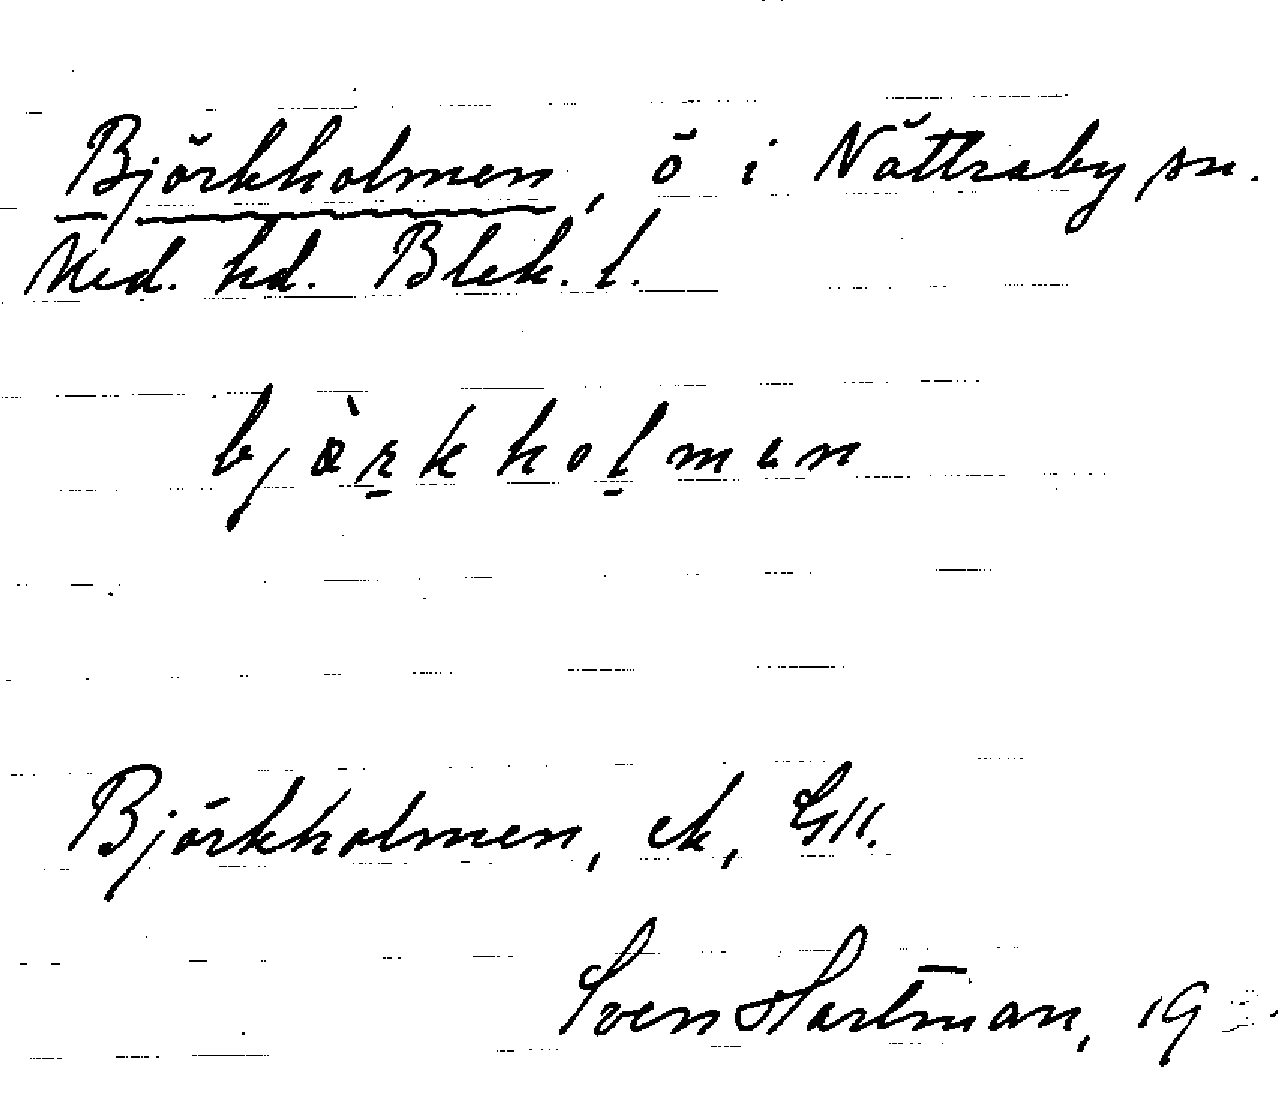 Björkholmen, ö i Nättraby sn.
Med. hd. Blek. l.
bjæ̀r̠khol̠mən
Björkholmen, ek,
Sven Hartman, 19